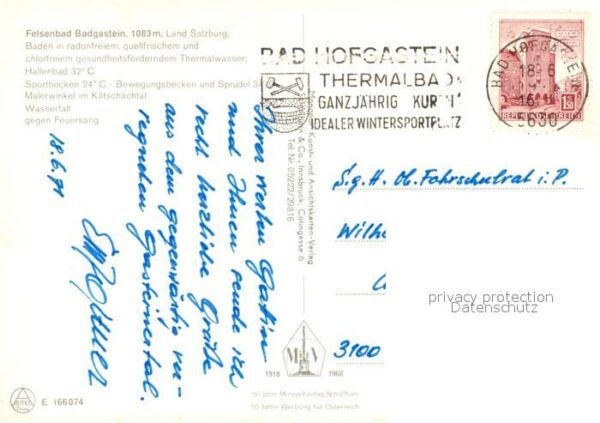 Felsenbad Badgastein, 1083 m, Land Salzburg;
Baden in radonfreiem, quellfrischem und
chlorfreiem gesundheitsförderndem Thermalwasser,
Hallenbad 32° C
Sportbecken 24° C - Bewegungsbecken und Sprudel 3
Malerwinkel im Kötschachtal
Wasserfall
gegen Feuersang
BAD HOFGASTEIN
THERMALBAD
GANZJÄHRIG KUREN
IDEALER WINTERSPORTPLATZ
BAD HOFGASTEIN
18. 6.
16
5630
1.50
REPUBLIK ÖSTERREICH
Kunst- und Ansichtskarten-Verlag
& Co., Innsbruck, Colingasse 6
Tel. Nr. 05222/29816
18.6.71
Ihrer werten Gattin
und Ihnen sende ich
recht herzliche Grüße
aus dem gegenwärtig ver-
regneten Gasteinertal.
S.g.H. Ob. Fahrschulrat i.P.
Wilh
3100
privacy protection
Datenschutz
M V
1918 1968
E 166074
50 Jahre Monopol-Verlag Schöllhorn
50 Jahre Werbung für Österreich